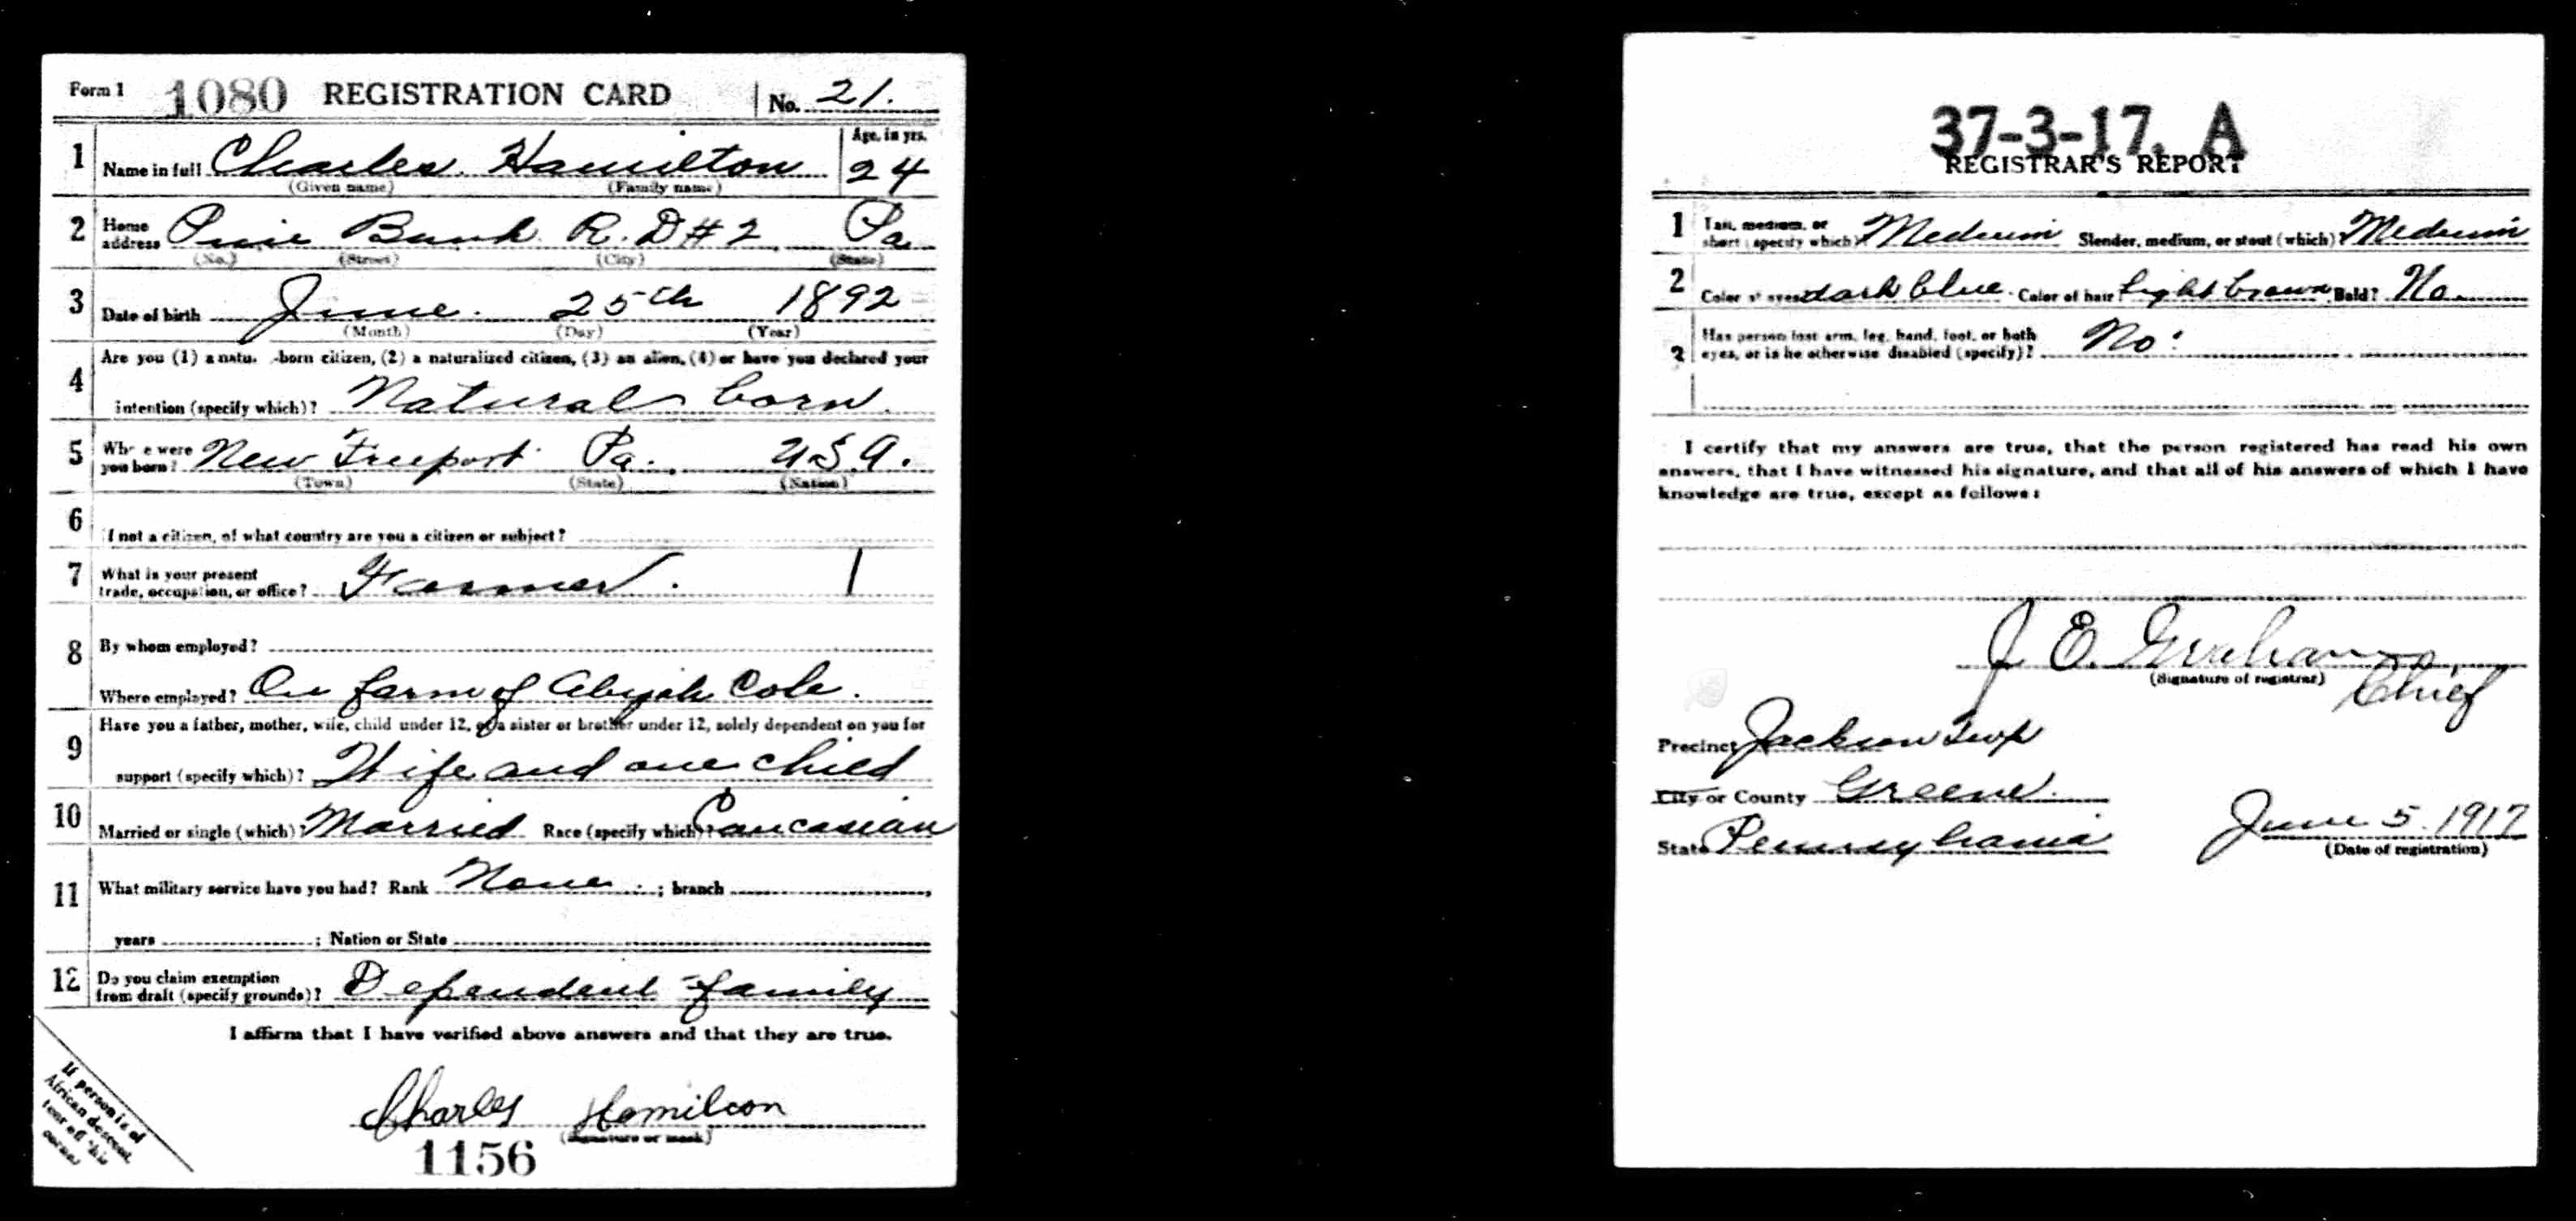 Form 1 1080 REGISTRATION CARD No. 21.
1 Name in full Charles Hamilton Age, in yrs. 24
(Given name) (Family name)
2 Home address Pine Bank R. D #2 Pa
(No.) (Street) (City) (State)
3 Date of birth June 25th 1892
(Month) (Day) (Year)
4 Are you (1) a natu. -born citizen, (2) a naturalized citizen, (3) an alien, (4) or have you declared your
intention (specify which)? Natural born
5 Whe e were you born? New Freeport Pa. U S A.
(Town) (State) (Nation)
6 If not a citizen, of what country are you a citizen or subject?
7 What is your present trade, occupation, or office? Farmer. 1
8 By whom employed?
Where employed? On farm of Abijah Cole.
9 Have you a father, mother, wife, child under 12, or a sister or brother under 12, solely dependent on you for
support (specify which)? Wife and one child
10 Married or single (which)? Married Race (specify which)? Caucasian
11 What military service have you had? Rank None ; branch
years ; Nation or State
12 Do you claim exemption from draft (specify grounds)? Dependent family
I affirm that I have verified above answers and that they are true.
Charles Hamilton
(Signature or mark)
1156
If person is of
African descent,
tear off this
corner
37-3-17. A
REGISTRAR'S REPORT
1 Tall, medium, or short (specify which)? Medium Slender, medium, or stout (which)? Medium
2 Color of eyes dark blue Color of hair light brown Bald? No
3 Has person lost arm, leg, hand, foot, or both
eyes, or is he otherwise disabled (specify)? No.
I certify that my answers are true, that the person registered has read his own
answers, that I have witnessed his signature, and that all of his answers of which I have
knowledge are true, except as follows:
J. E. Graham
(Signature of registrar) Chief
Precinct Jackson Twp
City or County Greene
State Pennsylvania June 5. 1917
(Date of registration)